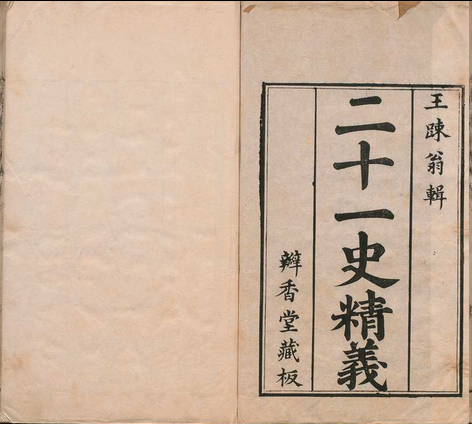 王踈翁輯
二十一史精義
辬香堂藏板